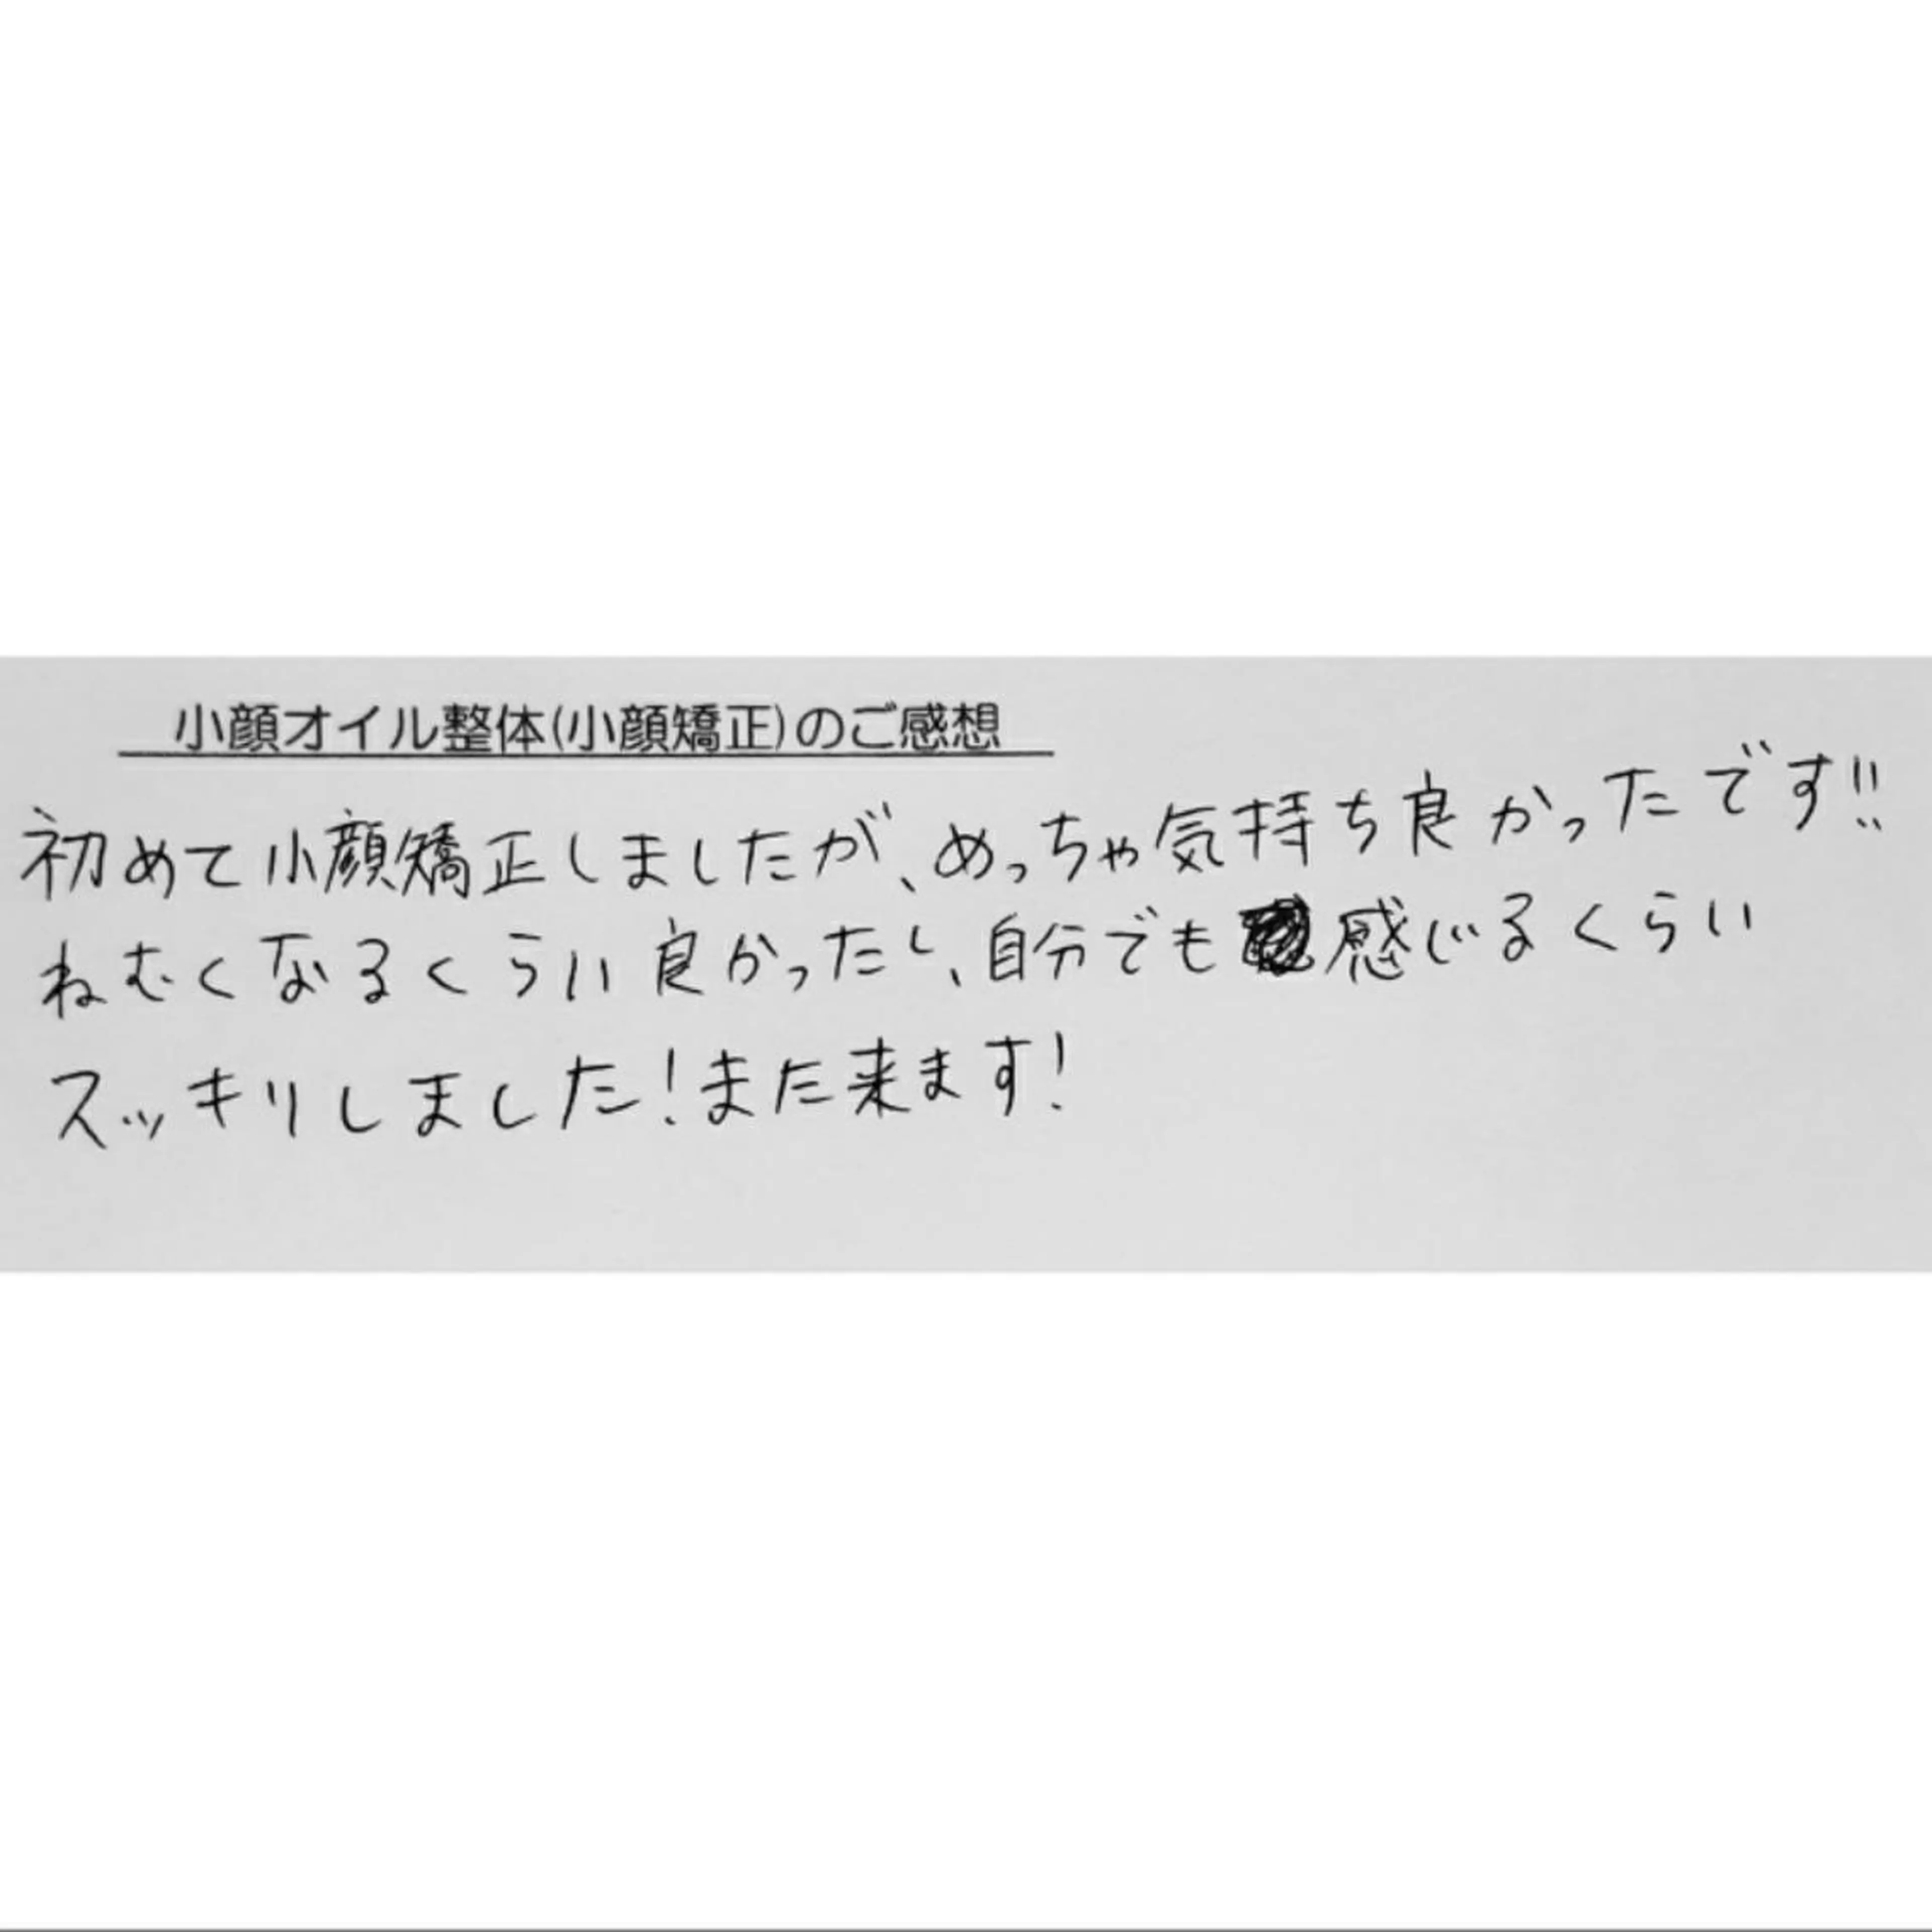 小顔オイル整体(小顔矯正)のご感想
初めて小顔矯正しましたが、めっちゃ気持ち良かったです!!
ねむくなるくらい良かったし、自分でも感じるくらい
スッキリしました!また来ます!